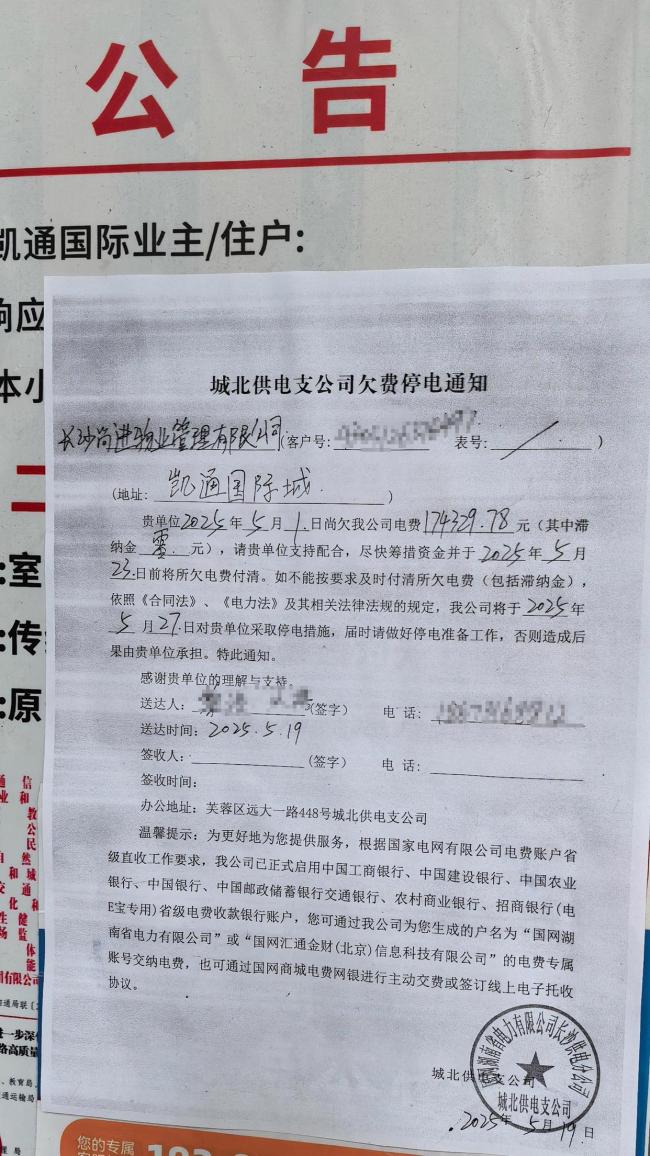 公 告
凯通国际业主/住户:
响应
本小
城北供电支公司欠费停电通知
长沙尚进物业管理有限公司(客户号: 表号: / )
(地址: 凯通国际城 )
贵单位2025年5月1日尚欠我公司电费174329.78元(其中滞
纳金 零 元),请贵单位支持配合,尽快筹措资金并于2025年5月
23日前将所欠电费付清。如不能按要求及时付清所欠电费(包括滞纳金),
依照《合同法》、《电力法》及其相关法律法规的规定,我公司将于2025年
5月27日对贵单位采取停电措施,届时请做好停电准备工作,否则造成后
果由贵单位承担。特此通知。
感谢贵单位的理解与支持。
送达人: (签字) 电 话:
送达时间: 2025.5.19
签收人: (签字) 电 话:
签收时间:
办公地址: 芙蓉区远大一路448号城北供电支公司
温馨提示: 为更好地为您提供服务,根据国家电网有限公司电费账户省
级直收工作要求,我公司已正式启用中国工商银行、中国建设银行、中国农业
银行、中国银行、中国邮政储蓄银行交通银行、农村商业银行、招商银行(电
E宝专用)省级电费收款银行账户,您可通过我公司为您生成的户名为“国网湖
南省电力有限公司”或“国网汇通金财(北京)信息科技有限公司”的电费专属
账号交纳电费,也可通过国网商城电费网银进行主动交费或签订线上电子托收
协议。
国网湖南省电力有限公司长沙供电分公司
城北供电支公司
城北供电支公司
2025年5月19日
:室
:传
:原
您的专属